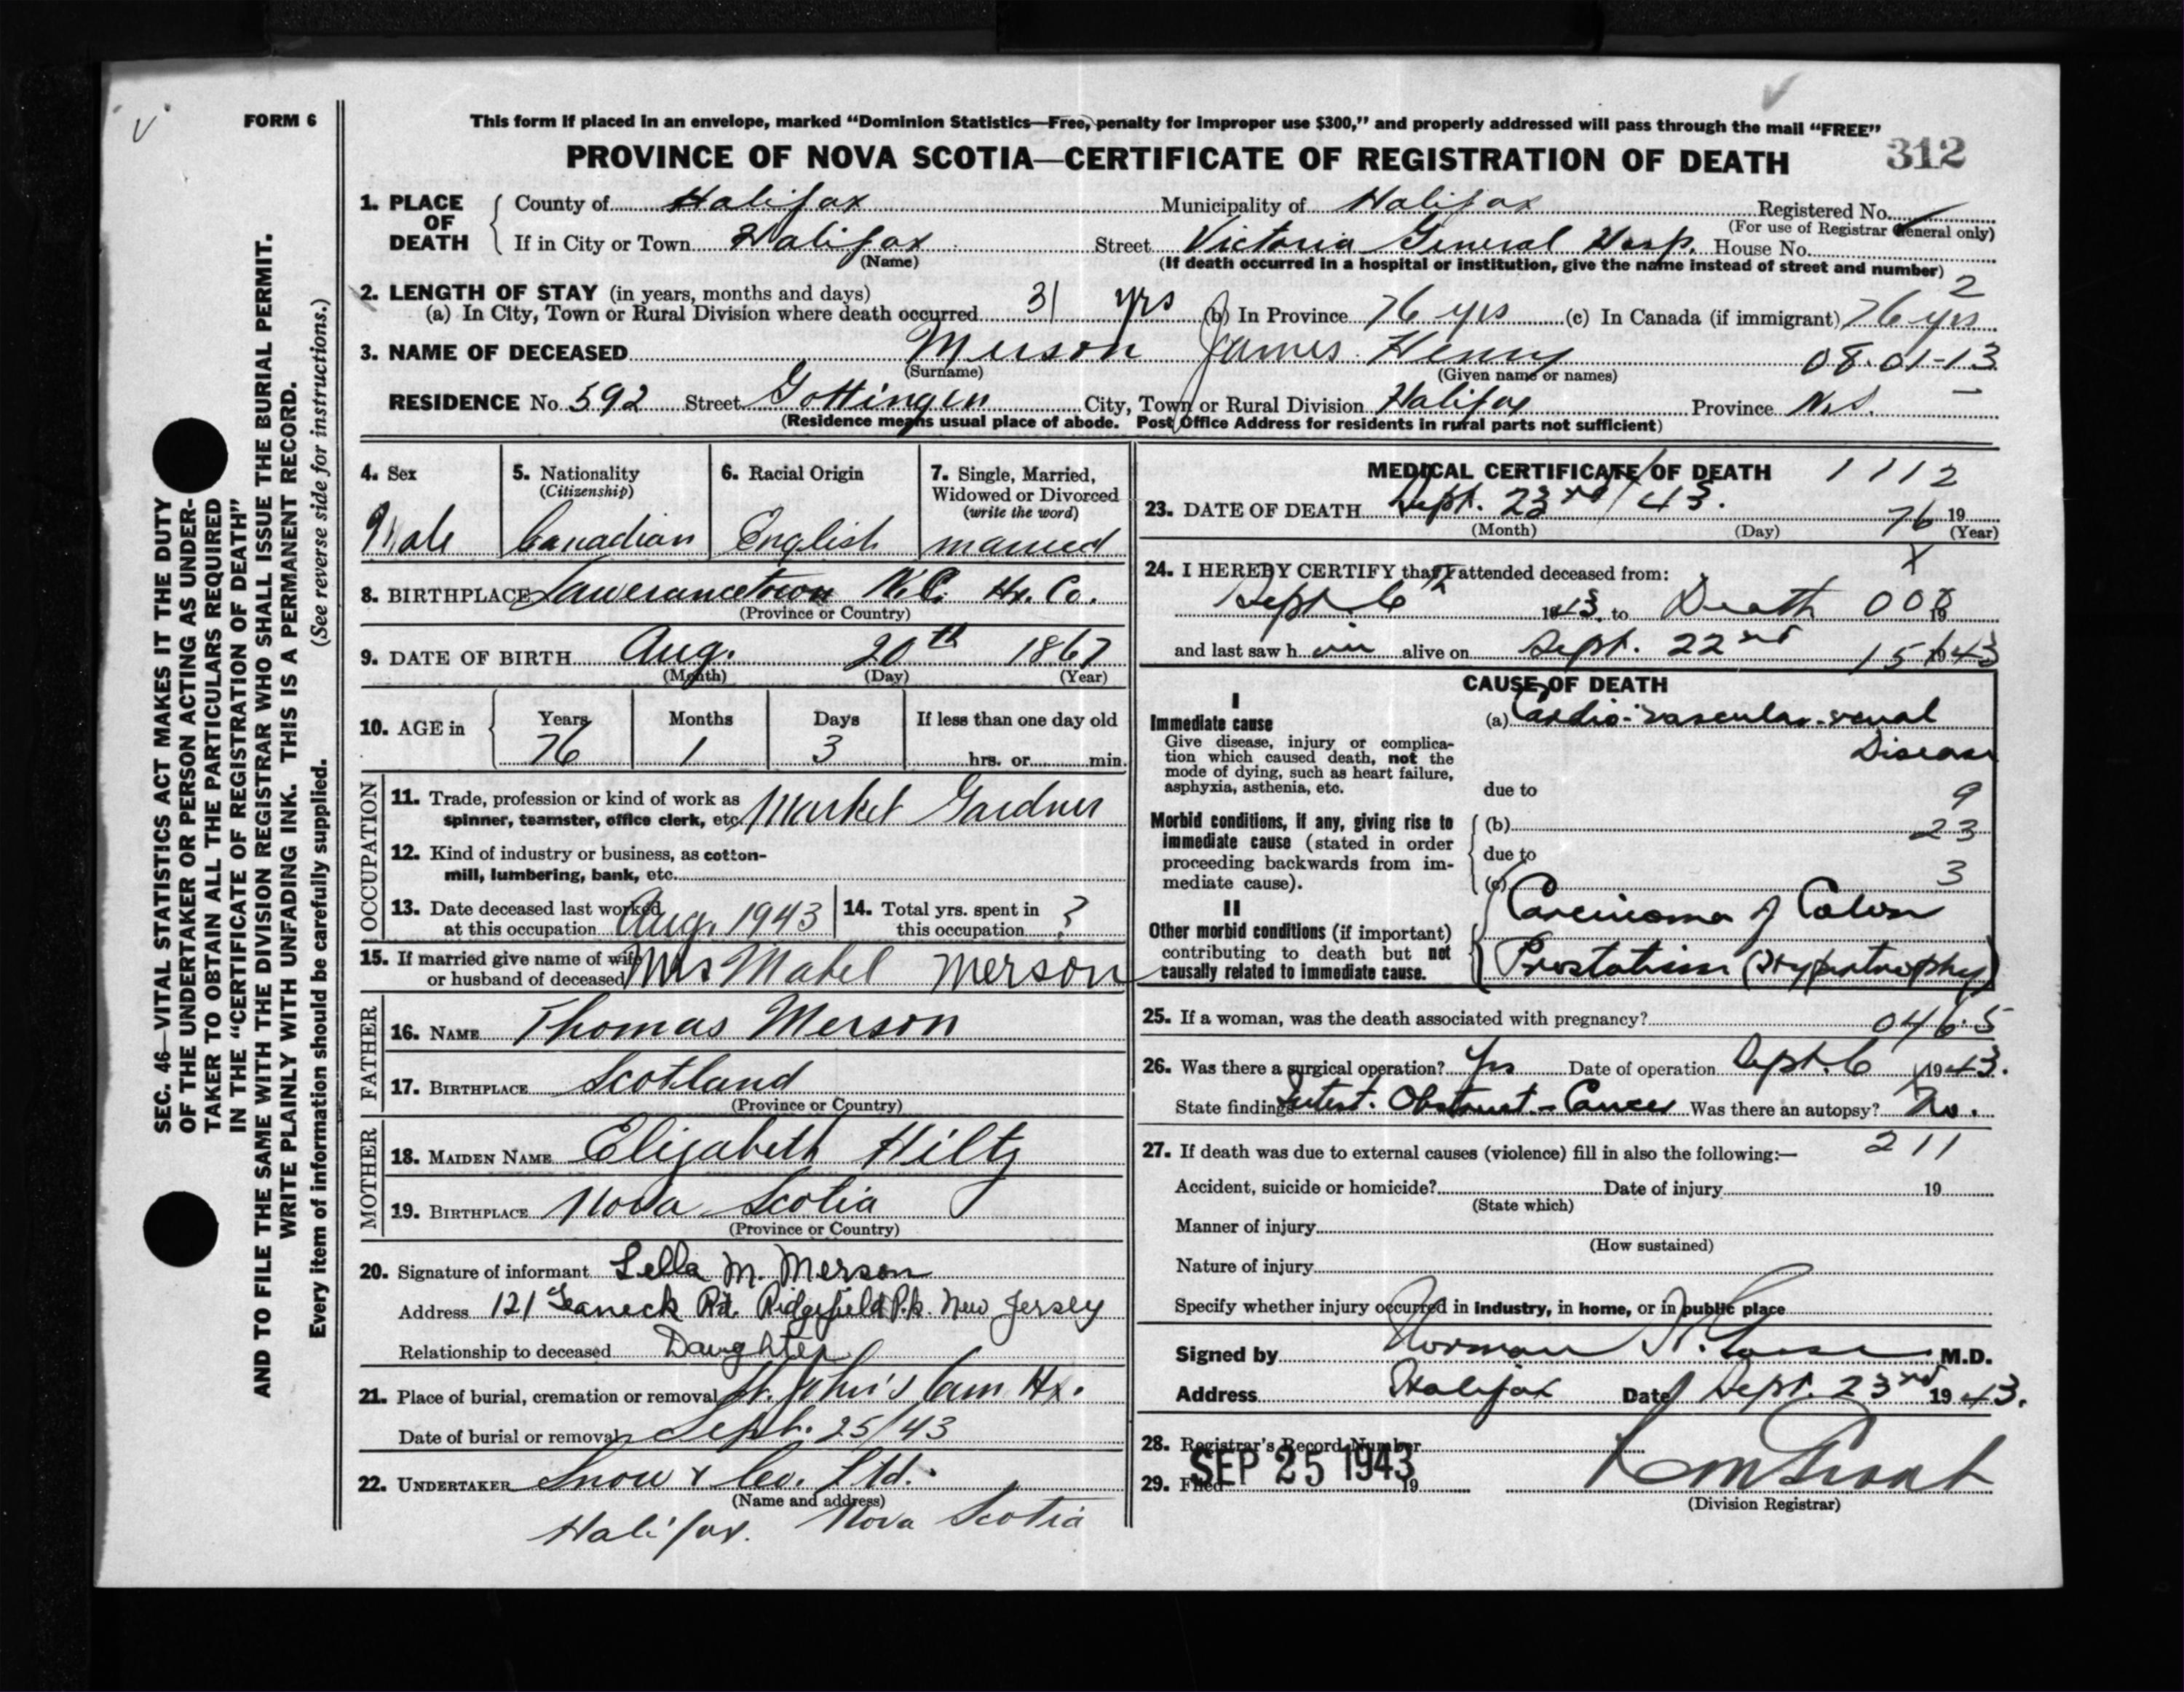 FORM 6
This form if placed in an envelope, marked “Dominion Statistics—Free, penalty for improper use $300,” and properly addressed will pass through the mail “FREE”
PROVINCE OF NOVA SCOTIA—CERTIFICATE OF REGISTRATION OF DEATH 312
1. PLACE OF DEATH
County of Halifax Municipality of Halifax Registered No.
(For use of Registrar General only)
If in City or Town Halifax Street Victoria General Hosp. House No.
(Name) (If death occurred in a hospital or institution, give the name instead of street and number)
2
2. LENGTH OF STAY (in years, months and days)
(a) In City, Town or Rural Division where death occurred 31 yrs (b) In Province 76 yrs (c) In Canada (if immigrant) 76 yrs
3. NAME OF DECEASED Merson James Henry 08-01-13
(Surname) (Given name or names)
RESIDENCE No. 592 Street Gottingen City, Town or Rural Division Halifax Province N.S.
(Residence means usual place of abode. Post Office Address for residents in rural parts not sufficient)
4. Sex
Male
5. Nationality
(Citizenship)
Canadian
6. Racial Origin
English
7. Single, Married,
Widowed or Divorced
(write the word)
married
8. BIRTHPLACE Lawerancetown Hx. Co.
(Province or Country)
9. DATE OF BIRTH Aug. 20th 1867
(Month) (Day) (Year)
10. AGE in
Years Months Days If less than one day old
76 1 3 hrs. or min.
OCCUPATION
11. Trade, profession or kind of work as
spinner, teamster, office clerk, etc. Market Gardner
12. Kind of industry or business, as cotton-
mill, lumbering, bank, etc.
13. Date deceased last worked
at this occupation Aug. 1943
14. Total yrs. spent in
this occupation ?
15. If married give name of wife
or husband of deceased Mrs Mabel Merson
FATHER
16. NAME Thomas Merson
17. BIRTHPLACE Scotland
(Province or Country)
MOTHER
18. MAIDEN NAME Elizabeth Hiltz
19. BIRTHPLACE Nova Scotia
(Province or Country)
20. Signature of informant Lella M. Merson
Address 121 Teaneck Rd. Ridgefield Pk. New Jersey
Relationship to deceased Daughter
21. Place of burial, cremation or removal St. John's Cem Hx.
Date of burial or removal Sept. 25/43
22. UNDERTAKER Snow & Co. Ltd.
(Name and address)
Halifax. Nova Scotia
MEDICAL CERTIFICATE OF DEATH 1112
23. DATE OF DEATH Sept. 23rd/43. 76 19
(Month) (Day) (Year)
X
24. I HEREBY CERTIFY that I attended deceased from:
Sept 6th 1943, to Death 008 19
and last saw h im alive on Sept. 22nd 15 1943
CAUSE OF DEATH
I
Immediate cause
Give disease, injury or complica-
tion which caused death, not the
mode of dying, such as heart failure,
asphyxia, asthenia, etc.
(a) Cardio-vascular-renal
Disease
due to 9
Morbid conditions, if any, giving rise to
immediate cause (stated in order
proceeding backwards from im-
mediate cause).
(b) 23
due to
(c) 3
II
Other morbid conditions (if important)
contributing to death but not
causally related to immediate cause.
Carcinoma of Colon
Prostatism (Hypertrophy)
25. If a woman, was the death associated with pregnancy? 046.5
26. Was there a surgical operation? Yes Date of operation Sept. 6 1943.
State findings Intest. Obstruct. - Cancer Was there an autopsy? No.
27. If death was due to external causes (violence) fill in also the following:— 211
Accident, suicide or homicide? Date of injury 19
(State which)
Manner of injury
(How sustained)
Nature of injury
Specify whether injury occurred in industry, in home, or in public place
Signed by Norman H. M.D.
Address Halifax Date Sept. 23rd 1943.
28. Registrar's Record Number
29. Filed SEP 25 1943 19
(Division Registrar)
SEC. 46—VITAL STATISTICS ACT MAKES IT THE DUTY
OF THE UNDERTAKER OR PERSON ACTING AS UNDER-
TAKER TO OBTAIN ALL THE PARTICULARS REQUIRED
IN THE “CERTIFICATE OF REGISTRATION OF DEATH”
AND TO FILE THE SAME WITH THE DIVISION REGISTRAR WHO SHALL ISSUE THE BURIAL PERMIT.
WRITE PLAINLY WITH UNFADING INK. THIS IS A PERMANENT RECORD.
Every item of information should be carefully supplied. (See reverse side for instructions.)